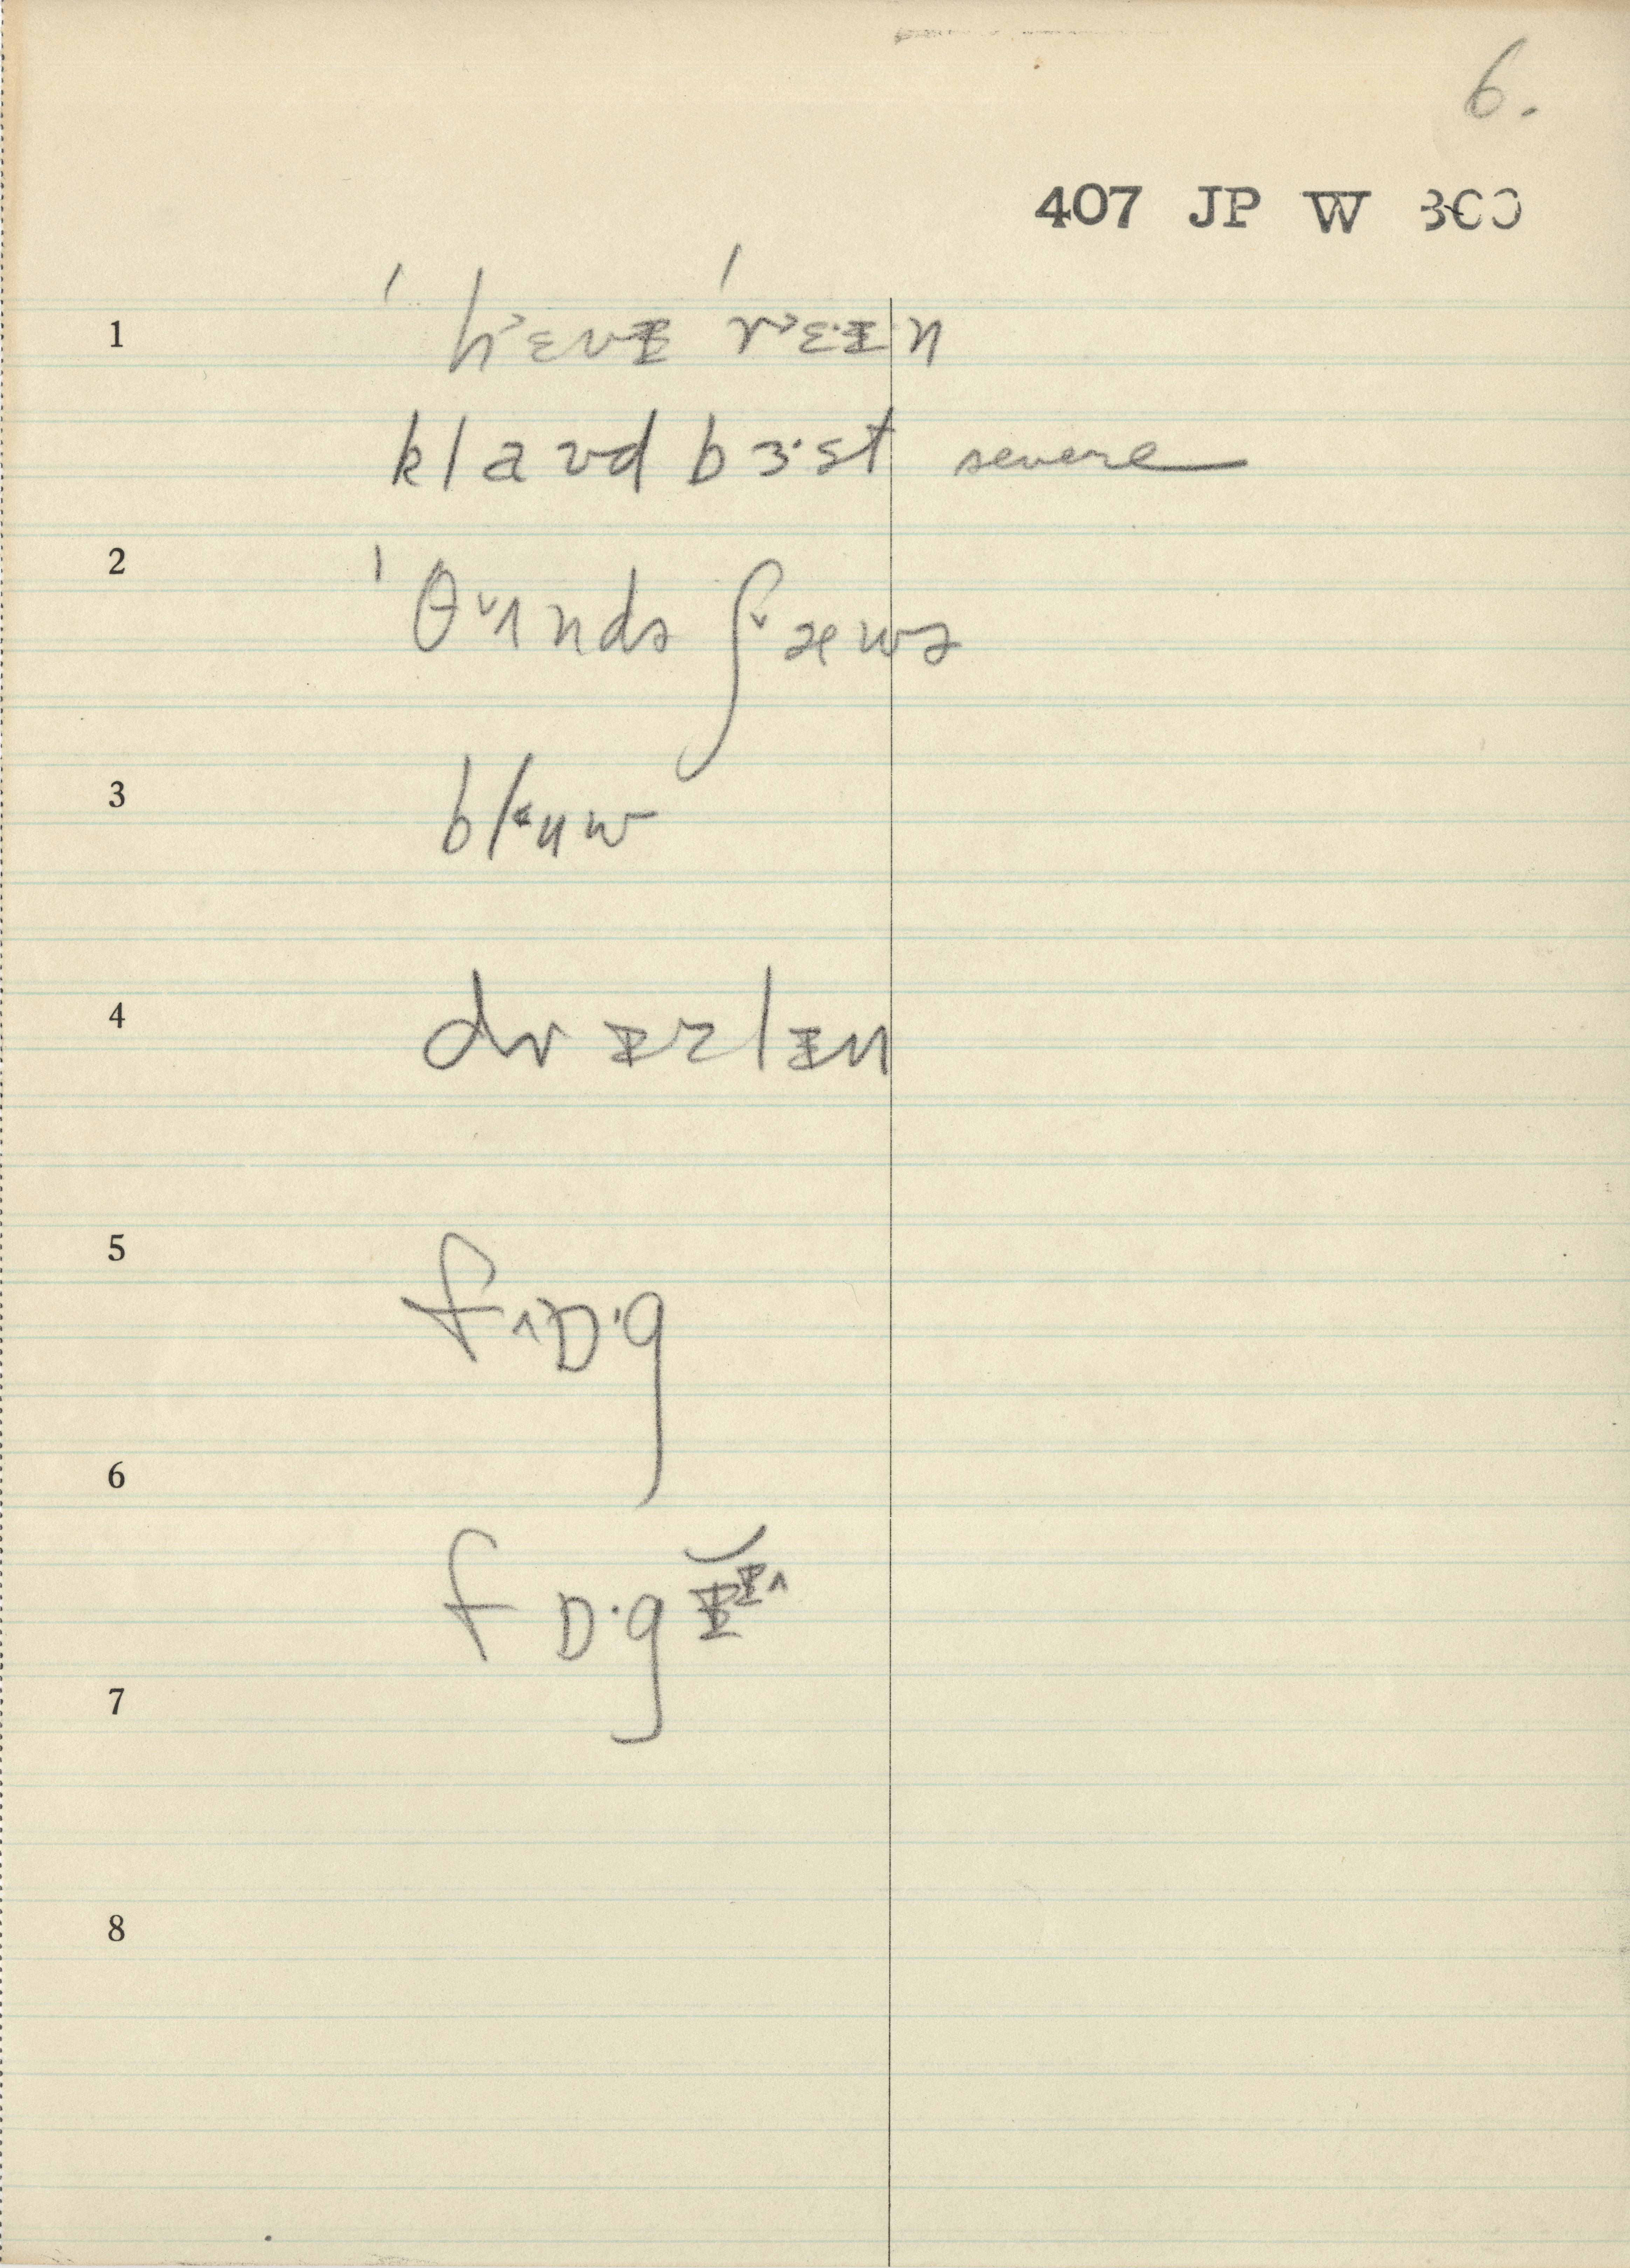 6.
407 JP W 300
1 ˈh˃ɛvɪ ˈr˃ɛ·ɪn
klaʊd bɜ·st severe
2 ˈθ˅ʌndə ʃ˅æwɚ
3 bl˂ɥw
4 dr ɪzlɪn
5 f˄ɒ·g
6 fɒ·gɪ
7
8